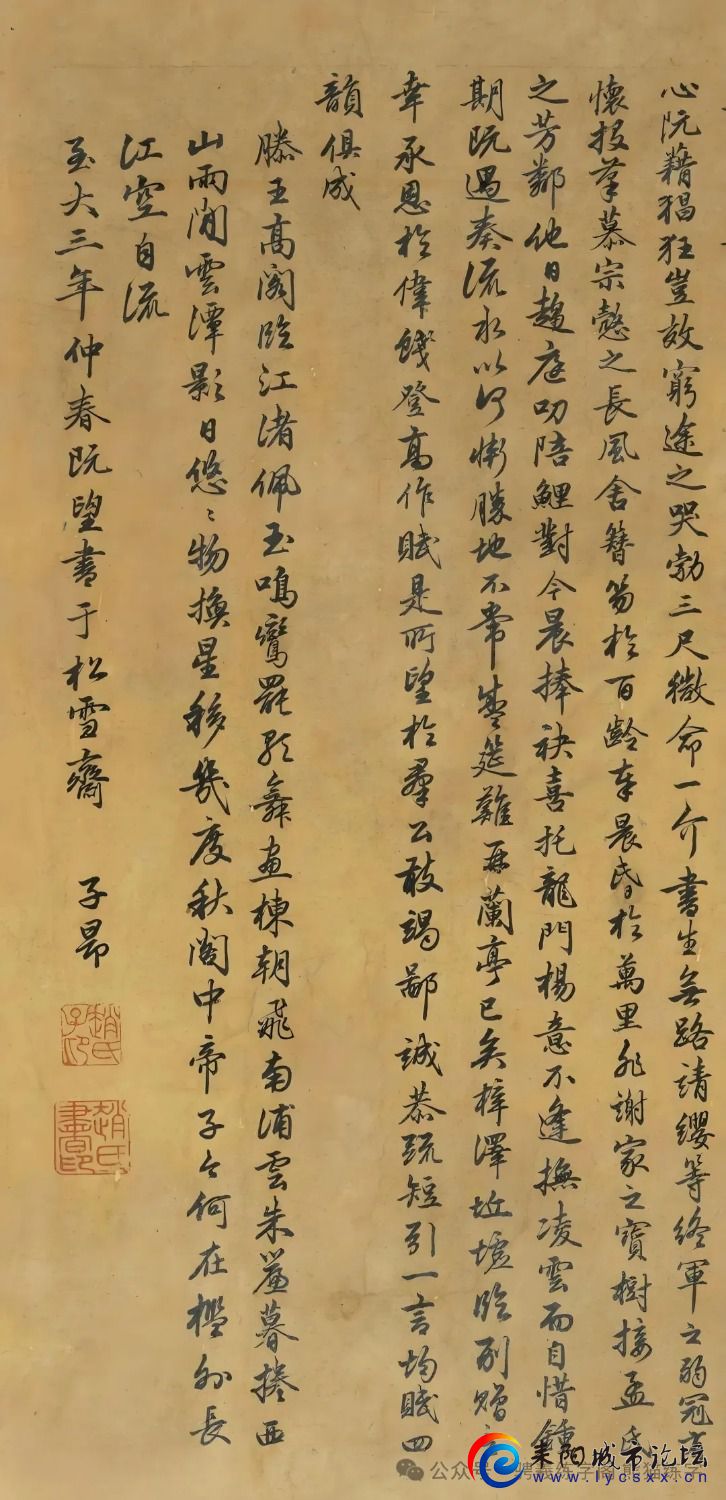 心阮藉猖狂豈效窮途之哭勃三尺微命一介書生無路請纓等終軍之弱冠有
懷投筆慕宗愨之長風舍簪笏於百齡奉晨昏於萬里非謝家之寶樹接孟氏
之芳鄰他日趨庭叨陪鯉對今晨捧袂喜托龍門楊意不逢撫凌雲而自惜鍾
期既遇奏流水以何慚勝地不常盛筵難再蘭亭已矣梓澤坵墟臨別贈
幸承恩於偉餞登高作賦是所望於群公敢竭鄙誠恭疏短引一言均賦四
韻俱成
滕王高閣臨江渚佩玉鳴鸞罷歌舞畫棟朝飛南浦雲朱簾暮捲西
山雨閒雲潭影日悠〻物換星移幾度秋閣中帝子今何在檻外長
江空自流
至大三年仲春既望書于松雪齋 子昂
趙氏書印
公众号
耒阳城市论坛
www.lycsxx.cn